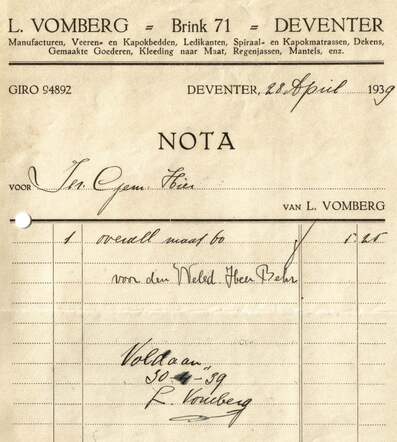 L. VOMBERG = Brink 71 = DEVENTER
Manufacturen, Veeren- en Kapokbedden, Ledikanten, Spiraal- en Kapokmatrassen, Dekens,
Gemaakte Goederen, Kleeding naar Maat, Regenjassen, Mantels, enz.
GIRO 94892 DEVENTER, 28 April 1939
NOTA
VOOR Isr. Gem. Hier
VAN L. VOMBERG
1 overall maat 60 5.25
voor den Weled. Heer Behr
Voldaan
30-4-'39
L. Vomberg